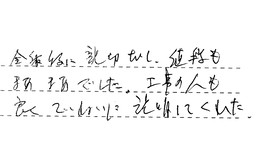 全体的に説明なし、値段も
まあまあでした。工事の人も
良くていねいに説明してくれた